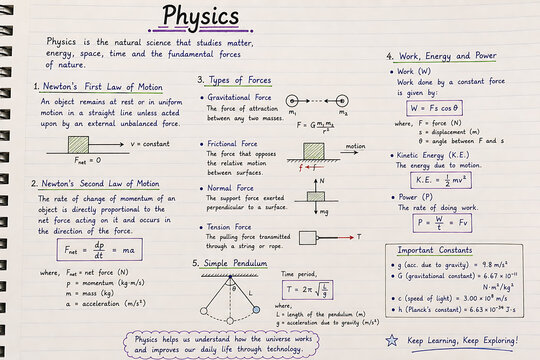 Physics
Physics is the natural science that studies matter,
energy, space, time and the fundamental forces
of nature.
1. Newton's First Law of Motion
An object remains at rest or in uniform
motion in a straight line unless acted
upon by an external unbalanced force.
v = constant
F_net = 0
2. Newton's Second Law of Motion
The rate of change of momentum of an
object is directly proportional to the
net force acting on it and occurs in
the direction of the force.
F_net = dp/dt = ma
where, F_net = net force (N)
p = momentum (kg·m/s)
m = mass (kg)
a = acceleration (m/s²)
3. Types of Forces
• Gravitational Force
The force of attraction
between any two masses.
m₁ m₂
F = G m₁m₂/r²
• Frictional Force
The force that opposes
the relative motion
between surfaces.
motion
f
• Normal Force
The support force exerted
perpendicular to a surface.
N
mg
• Tension Force
The pulling force transmitted
through a string or rope.
T
5. Simple Pendulum
θ
L
Time period,
T = 2π √(L/g)
where,
L = length of the pendulum (m)
g = acceleration due to gravity (m/s²)
4. Work, Energy and Power
• Work (W)
Work done by a constant force
is given by:
W = Fs cos θ
where, F = force (N)
s = displacement (m)
θ = angle between F and s
• Kinetic Energy (K.E.)
The energy due to motion.
K.E. = 1/2 mv²
• Power (P)
The rate of doing work.
P = W/t = Fv
Important Constants
• g (acc. due to gravity) = 9.8 m/s²
• G (gravitational constant) = 6.67 × 10⁻¹¹
N·m²/kg²
• c (speed of light) = 3.00 × 10⁸ m/s
• h (Planck's constant) = 6.63 × 10⁻³⁴ J·s
Physics helps us understand how the universe works
and improves our daily life through technology.
Keep Learning, Keep Exploring!